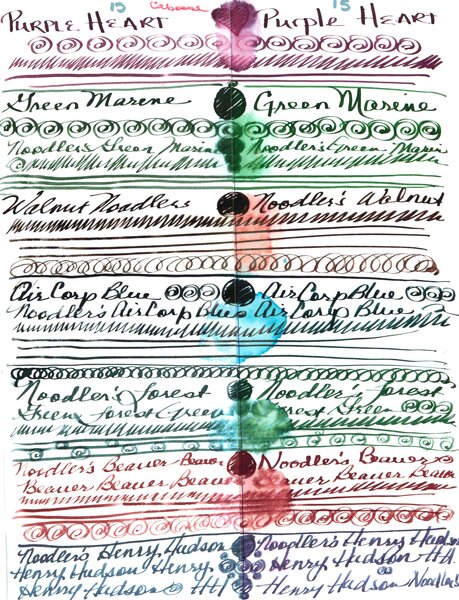 15 15
PURPLE HEART Purple HEART
Green Marine Green Marine
Noodler's Green Marin Noodler's Green Marin
Walnut Noodlers Noodler's Walnut
Air Corp Blue Air Corp Blue
Noodler's Air Corp Blue Air Corp Blue
Noodler's forest Noodler's forest
Green forest Green rest Green
Noodler's Beaver Beaver Noodler's Beaver
Beaver Beaver Beaver Beau Beaver Beaver Beaver
Noodler's Henry Hudson Noodler's Henry Hudson
Henry Hudson Henry Henry Hudson HH
Henry Hudson HH Henry Hudson Noodler's